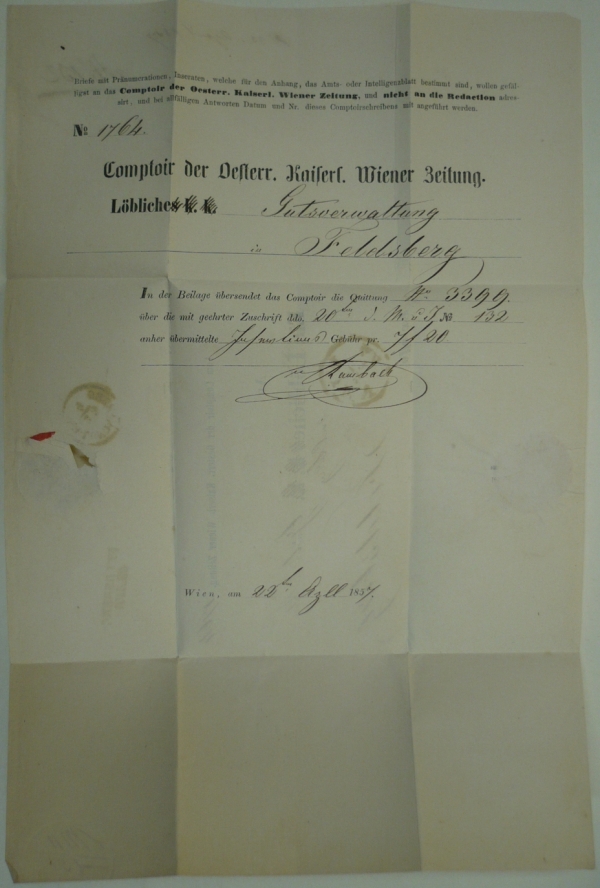 Briefe mit Pränumerationen, Inseraten, welche für den Anhang, das Amts- oder Intelligenzblatt bestimmt sind, wollen gefäl-
ligst an das Comptoir der Oesterr. Kaiserl. Wiener Zeitung, und nicht an die Redaction adres-
sirt, und bei allfälligen Antworten Datum und Nr. dieses Comptoirschreibens mit angeführt werden.
№ 1764.
Comptoir der Oesterr. Kaiserl. Wiener Zeitung.
Löbliches k. k. Gutsverwaltung
in Feldsberg
In der Beilage übersendet das Comptoir die Quittung Nro 3399.
über die mit geehrter Zuschrift ddo. 20ten d. M. u J № 132
anher übermittelte Insertions Gebühr pr. 7f 20
Wien, am 22ten April 1857.